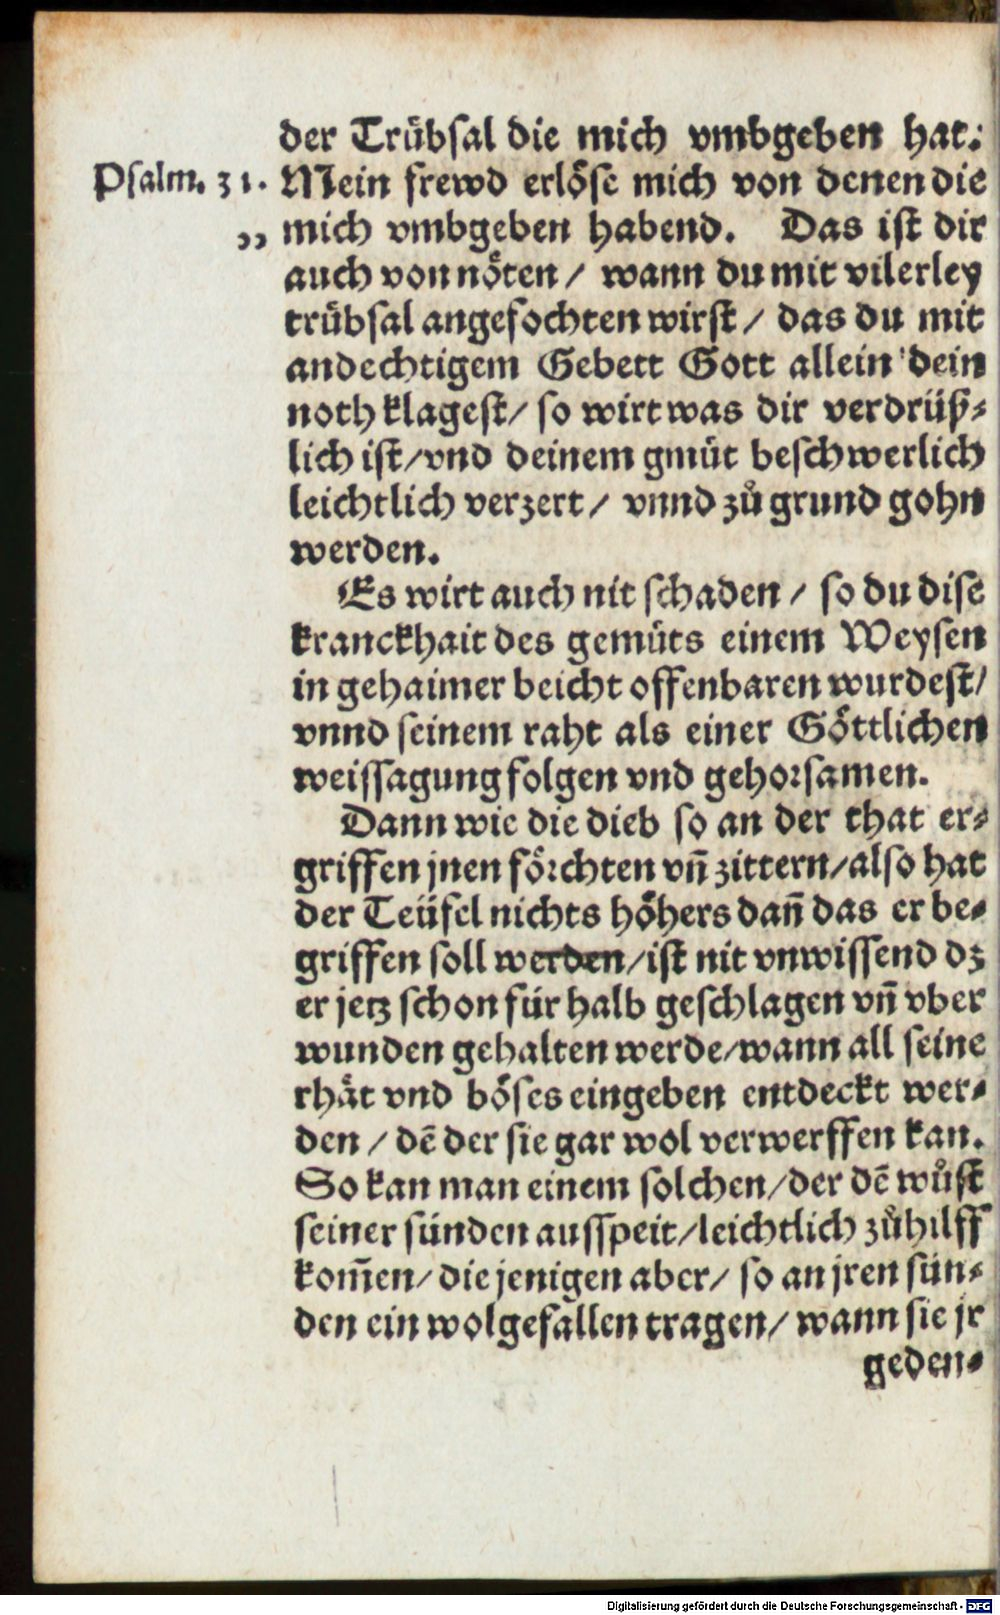 der Trübsal die mich vmbgeben hat:
Psalm. 31. Mein frewd erlöse mich von denen die
„ mich vmbgeben habend. Das ist dir
auch von nöten / wann du mit vilerley
trübsal angefochten wirst / das du mit
andechtigem Gebett Gott allein dein
noth klagest / so wirt was dir verdrüß-
lich ist / vnd deinem gmüt beschwerlich
leichtlich verzert / vnnd zů grund gohn
werden.
Es wirt auch nit schaden / so du dise
kranckhait des gemüts einem Weysen
in gehaimer beicht offenbaren wurdest /
vnnd seinem raht als einer Göttlichen
weissagung folgen vnd gehorsamen.
Dann wie die dieb so an der that er-
griffen jnen förchten vñ zittern / also hat
der Teüfel nichts höhers dañ das er be-
griffen soll werden / ist nit vnwissend dz
er jetz schon für halb geschlagen vñ vber
wunden gehalten werde / wann all seine
rhät vnd böses eingeben entdeckt wer-
den / dẽ der sie gar wol verwerffen kan.
So kan man einem solchen / der dẽ wůst
seiner sünden ausspeit / leichtlich zůhilff
kom̃en / die jenigen aber / so an jren sün-
den ein wolgefallen tragen / wann sie jr
geden-
Digitalisierung gefördert durch die Deutsche Forschungsgemeinschaft - DFG